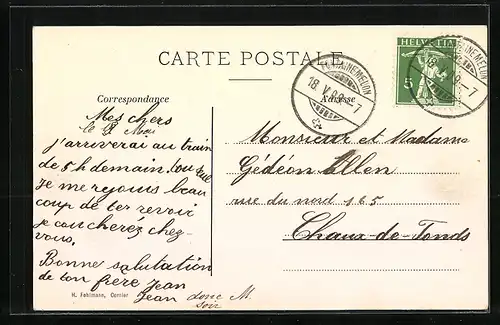 CARTE POSTALE
Correspondance
Adresse
HELVETIA
5
FONTAINEMELON
18. V. 09. - 7
FONTAINEMELON
18. V. 09. - 7
Mes chers
le
J'arriverai au train
de 5 h demain.
je me rejouis beau
coup de te revoir
je coucherez chez-
vous.
Bonne salutation
de ton frère Jean
Jean donc M.
soir
H. Fehlmann, Cernier
Monsieur et Madame
Gédéon Allen
rue du nord 165
Chaux-de-Fonds